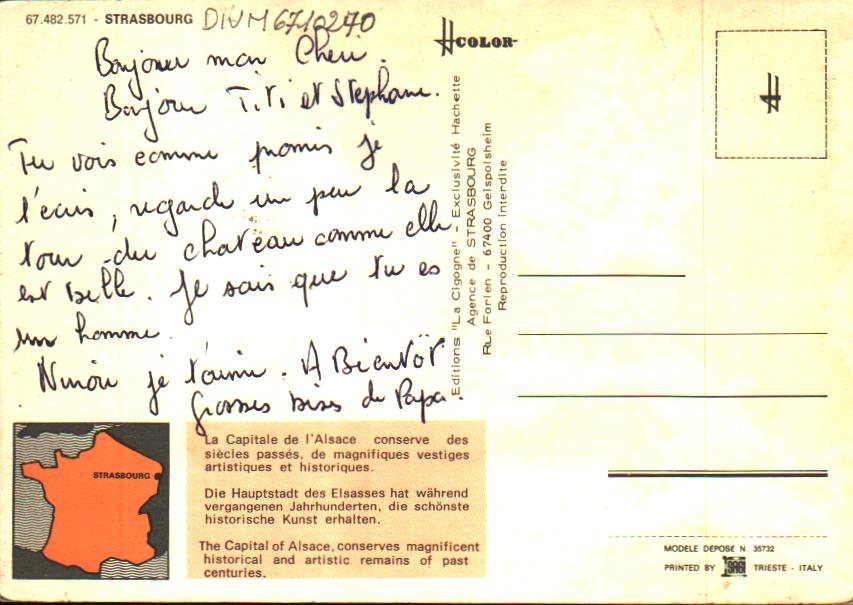 67.482.571 - STRASBOURG DIVM6710270
Bonjour mon Cheri.
Bonjour Titi et Stephane.
Tu vois comme promis je
t'ecris, regarde un peu la
tour du chateau comme elle
est belle. Je sais que tu es
un homme.
je t'aime. A Bientôt
Grosses bises de Papa.
COLOR
Editions "La Cigogne" - Exclusivité Hachette
Agence de STRASBOURG
Rue Forlen - 67400 Geispolsheim
Reproduction interdite
STRASBOURG
La Capitale de l'Alsace conserve des
siècles passés, de magnifiques vestiges
artistiques et historiques.
Die Hauptstadt des Elsasses hat während
vergangenen Jahrhunderten, die schönste
historische Kunst erhalten.
The Capital of Alsace, conserves magnificent
historical and artistic remains of past
centuries.
MODELE DEPOSE N. 35732
PRINTED BY TRIESTE - ITALY